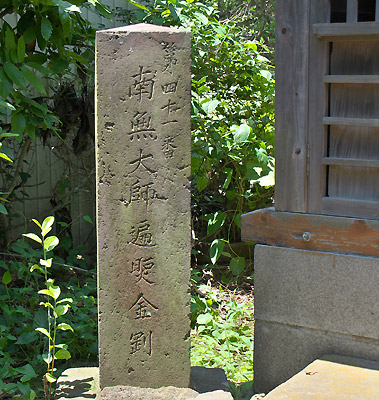 第四十一番
南無大師遍昭金剛